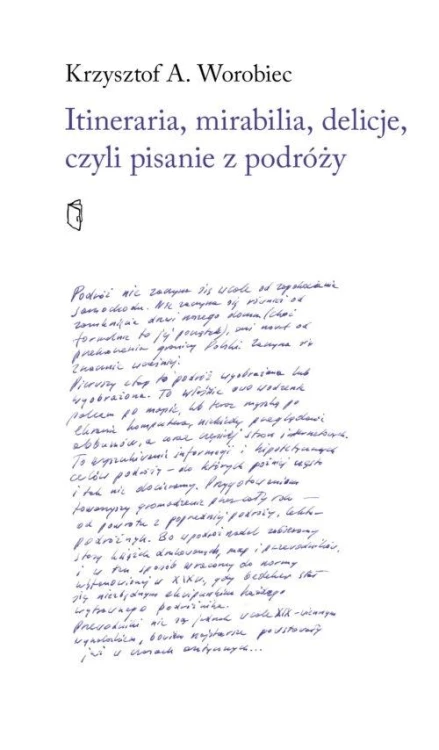 Krzysztof A. Worobiec
Itineraria, mirabilia, delicje,
czyli pisanie z podróży
Podróż nie zaczyna się wcale od zapakowania
samochodu. Nie zaczyna się również od
zamknięcia drzwi naszego domu (choć
formalnie to jej początek), ani nawet od
przekroczenia granicy Polski. Zaczyna się
znacznie wcześniej.
Pierwszy etap to podróż wyobrażona lub
wyobrażana. To właśnie owo wodzenie
palcem po mapie, lub teraz myszką po
ekranie komputera, niekiedy przeglądanie
albumów, a coraz częściej stron internetowych.
To wyszukiwanie informacji i hipotetycznych
celów podróży – do których później często
i tak nie docieramy. Przygotowaniom
towarzyszy gromadzenie przez cały rok –
od powrotu z poprzedniej podróży, lektur
podróżnych. Bo w podróż nadal zabieramy
stosy książek drukowanych, map i przewodników,
i w ten sposób wracamy do normy
ustanowionej w XIX w., gdy bedeker stał
się niezbędnym ekwipunkiem każdego
wytrawnego podróżnika.
Przewodniki nie są jednak wcale XIX-wiecznym
wynalazkiem, bowiem najstarsze powstawały
już w czasach antycznych...